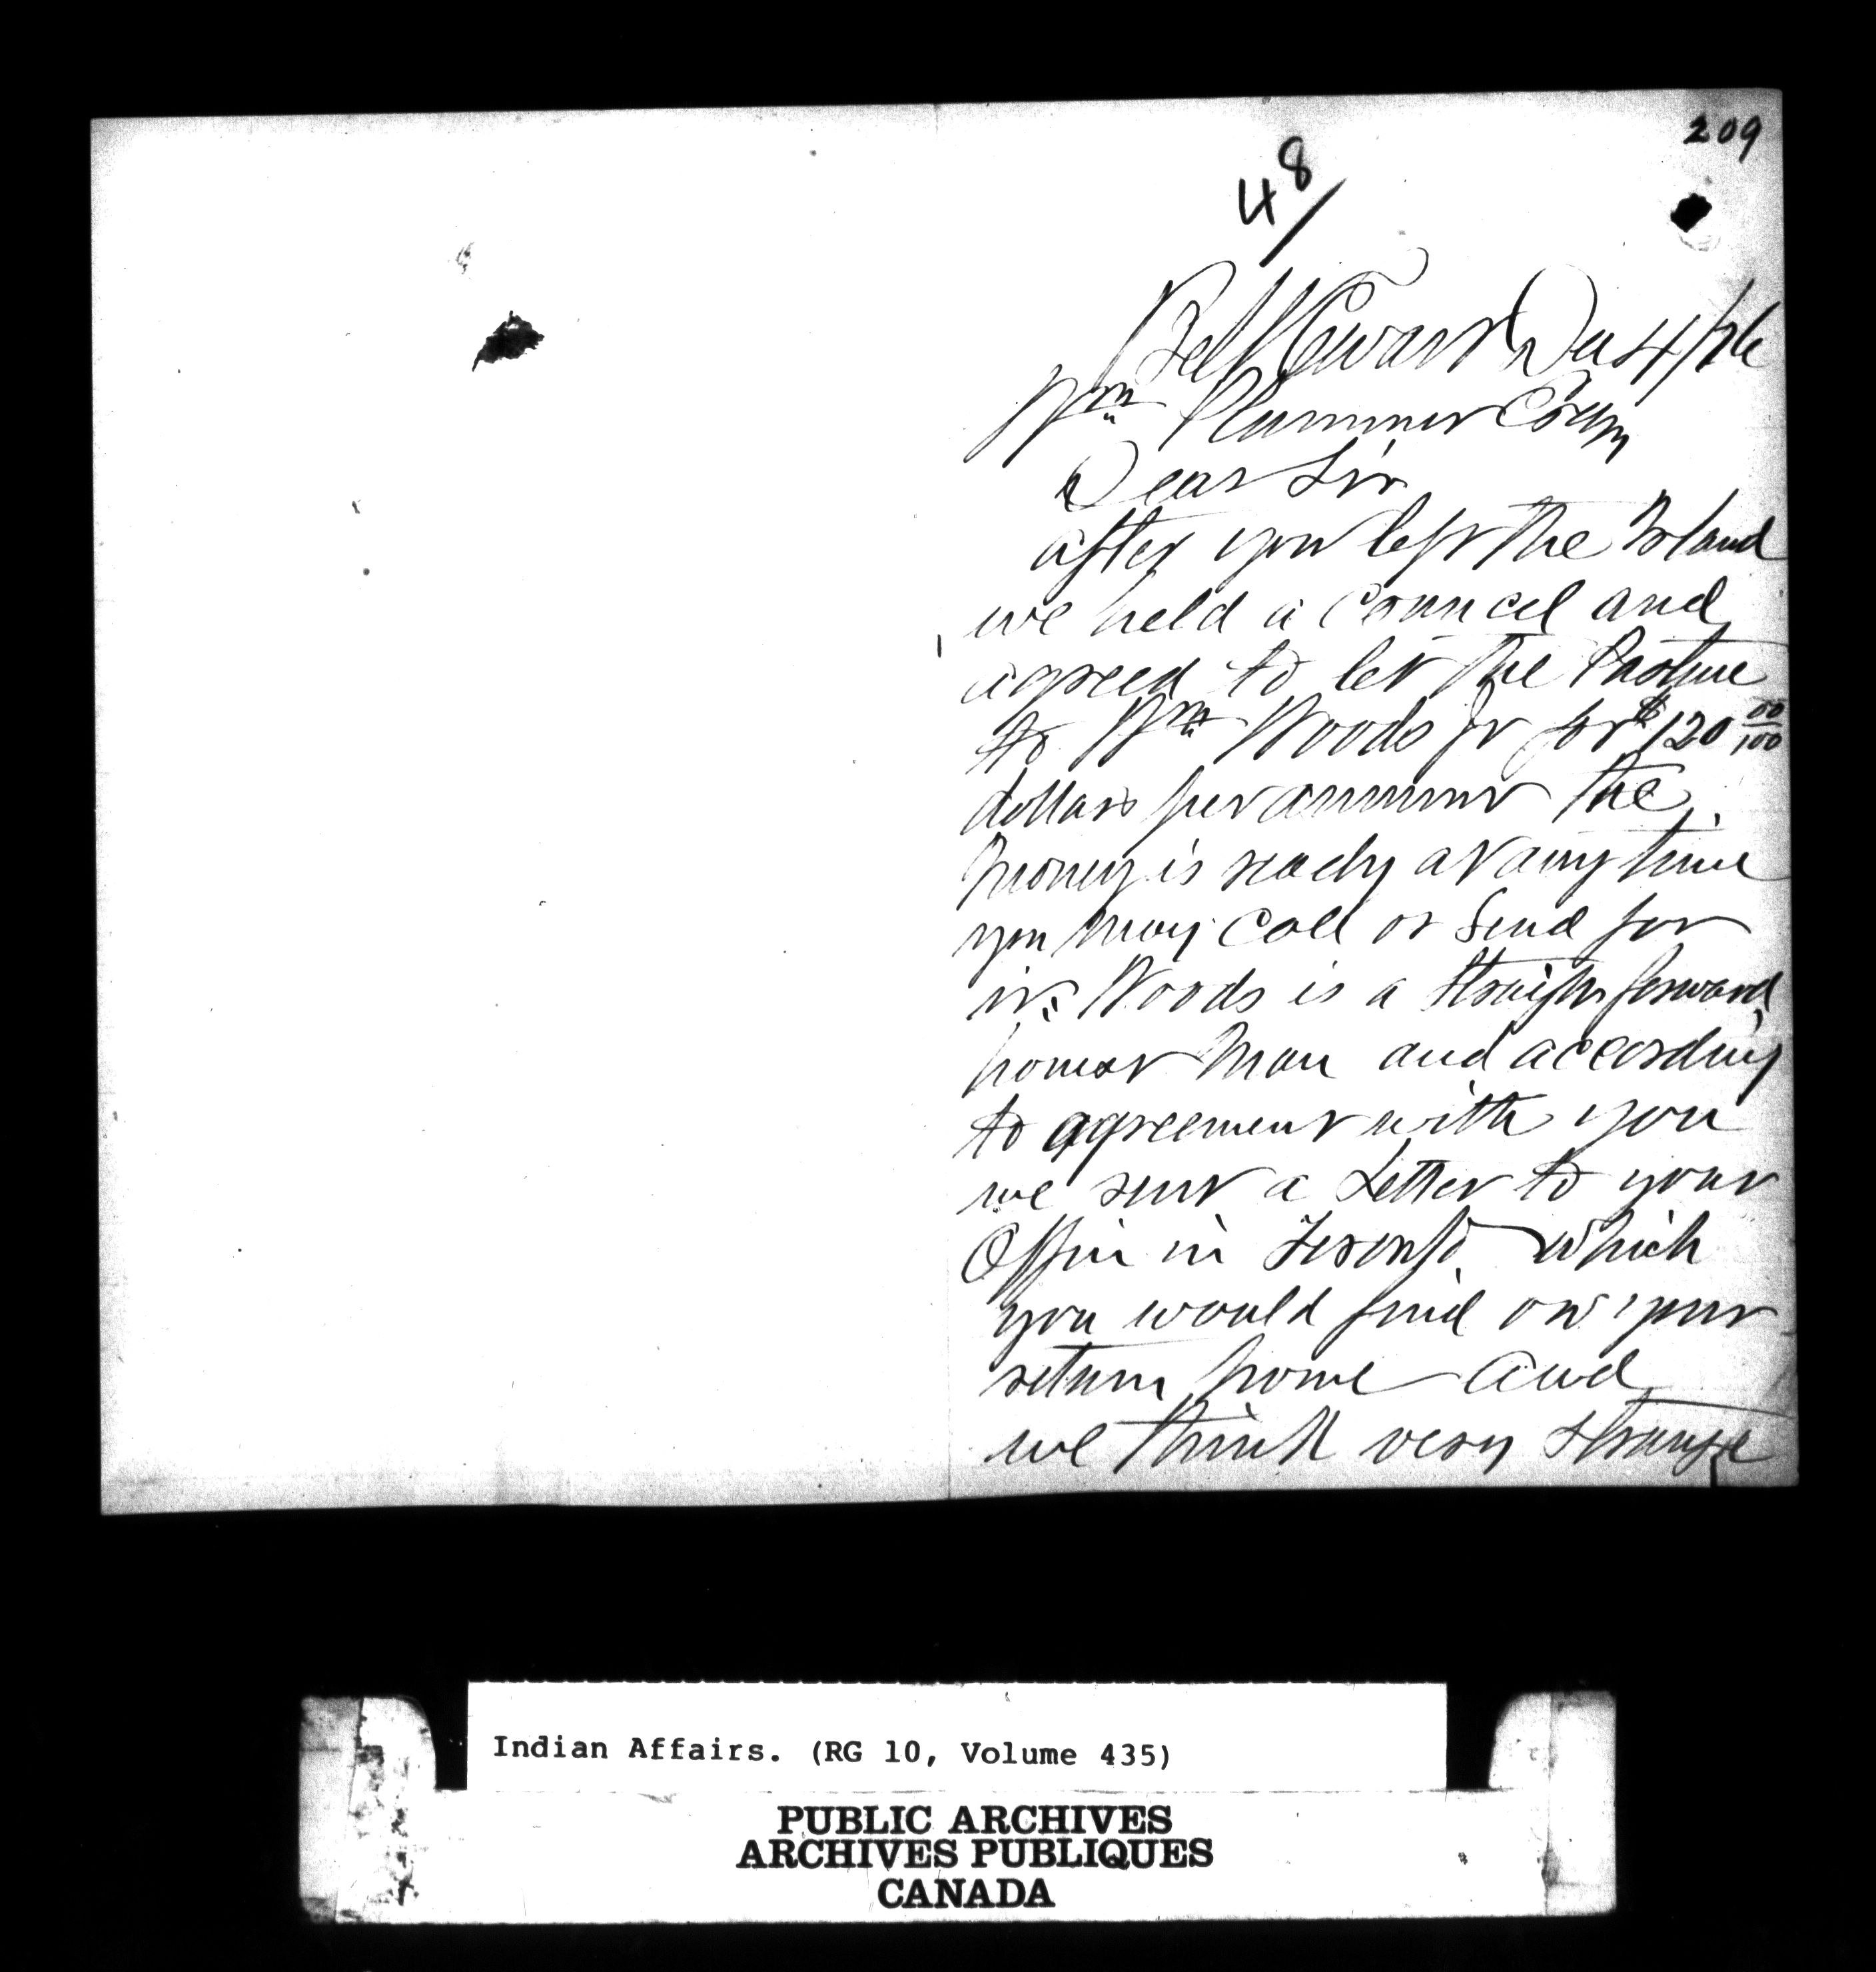 209
48/
Bel Ewart Dec 4/76
Wm Plummer Esqr
Dear Sir
after you left the Island
we held a Council and
agreed to let the Pasture
to Wm Woods Jr for $120 00/100
dollars per annum the
money is ready at any time
you may call or Send for
it. Woods is a straight forward
honest man and according
to agreement with you
we sent a Letter to your
Office in Toronto which
you would find on your
return home and
we think very strange
Indian Affairs. (RG 10, Volume 435)
PUBLIC ARCHIVES
ARCHIVES PUBLIQUES
CANADA